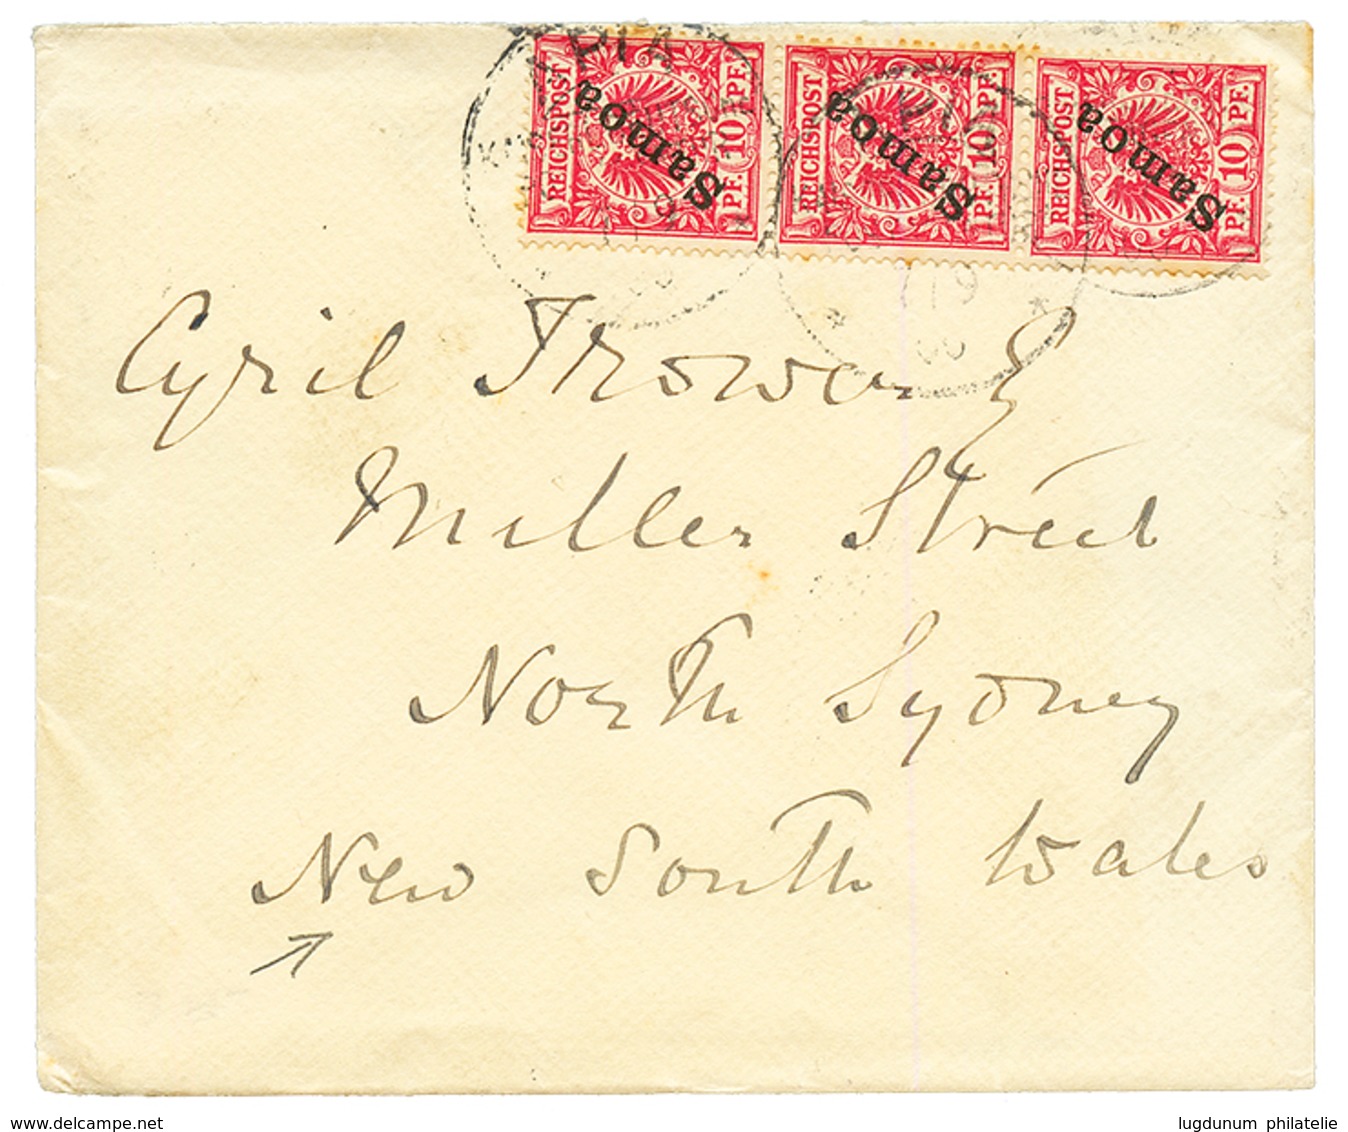 REICHSPOST 10 PF. PF. Samoa
REICHSPOST 10 PF. PF. Samoa
REICHSPOST 10 PF. PF. Samoa
APIA
19
00
Cyril
Miller Street
North Sydney
New South Wales
www.delcampe.net
lugdunum philatelie